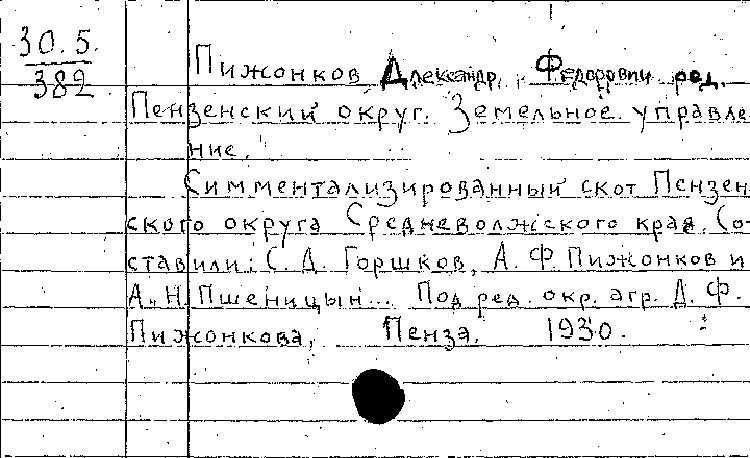 30.5.
382
Пижонков Александр Федорович ред.
Пензенский округ. Земельное управле-
ние.
Симментализированный скот Пензен-
ского округа Средневолжского края. (Со-
ставили: С. Д. Горшков, А. Ф. Пижонков и
А. Н. Пшеницын... Под ред. окр. агр. А. Ф.
Пижонкова, Пенза, 1930.